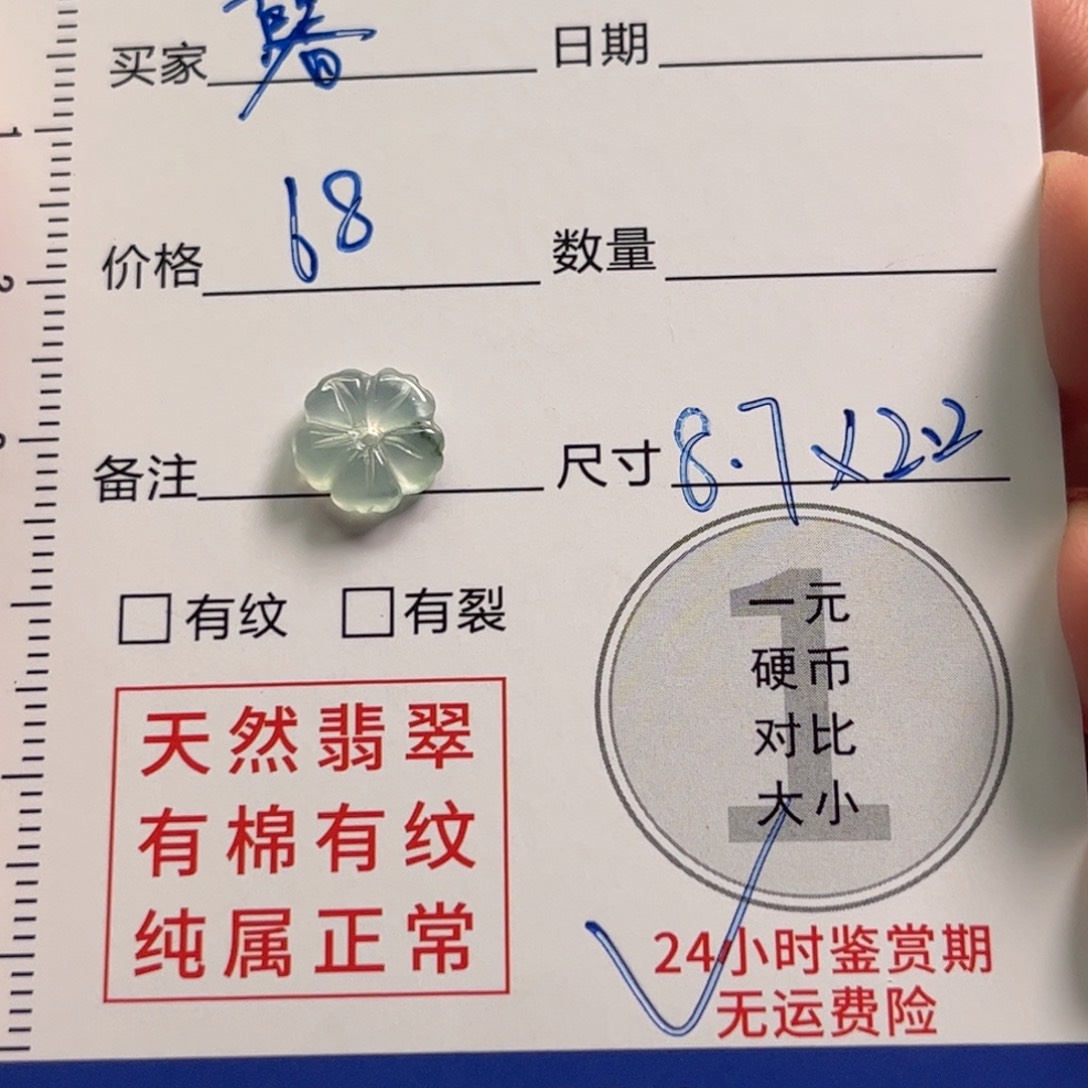 买家 日期
价格 68 数量
备注 尺寸 8.7×2.2
□有纹 □有裂
天然翡翠
有棉有纹
纯属正常
1
一元
硬币
对比
大小
24小时鉴赏期
无运费险
1
2